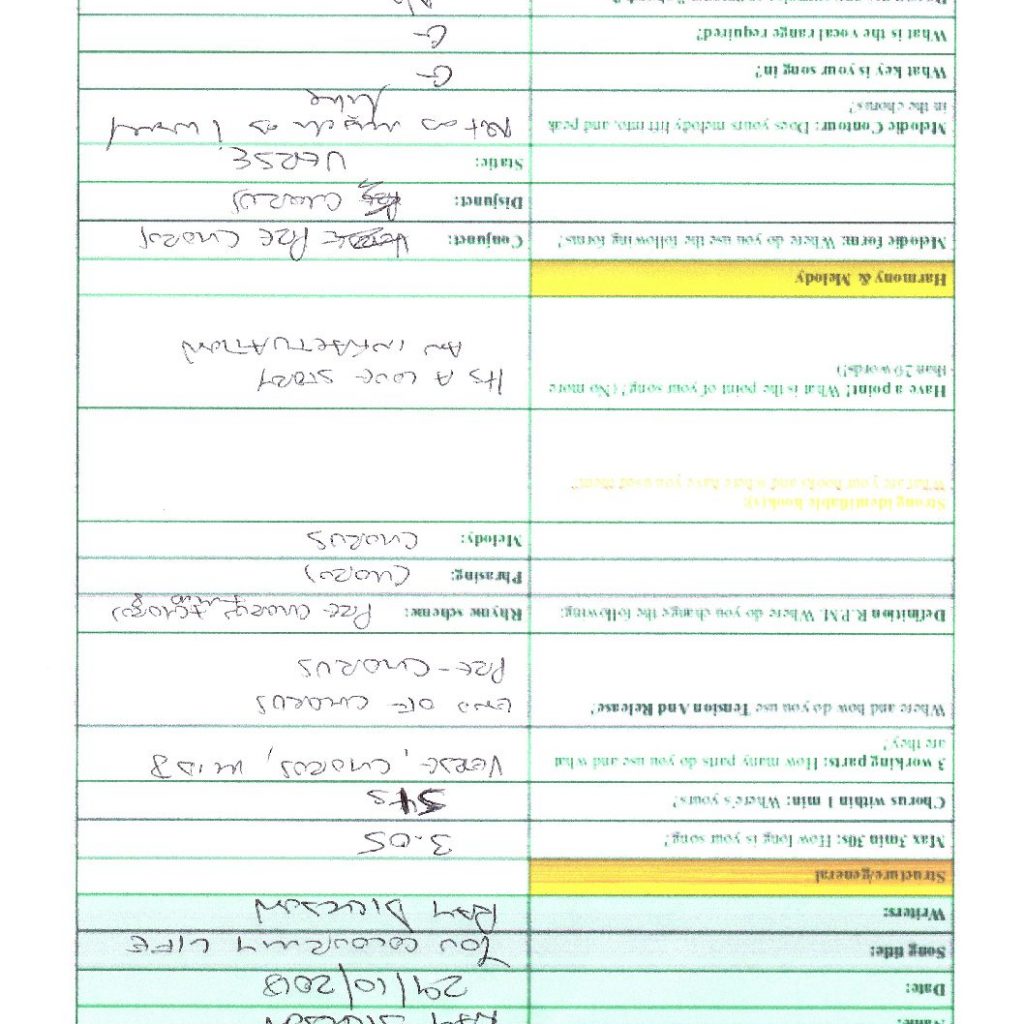 Name: RAY
Date: 29/10/2018
Song title: YOU COLOUR MY LIFE
Writers: RAY
Structure/general
Max 3min 30s: How long is your song? 3.05
Chorus within 1 min: Where's yours? 54s
3 working parts: How many parts do you use and what VERSE, CHORUS, MID 8
are they?
Where and how do you use Tension And Release? END OF CHORUS
PRE-CHORUS
Definition R.P.M. Where do you change the following: Rhyme scheme: PRE-CHORUS + CHORUS
Phrasing: CHORUS
Melody: CHORUS
Strong identifiable hook(s):
What are your hooks and where have you used them?
Have a point! What is the point of your song? (No more ITS A LOVE STORY
than 20 words!) AN INFACTUATION
Harmony & Melody
Melodic form: Where do you use the following forms? Conjunct: PRE CHORUS
Disjunct: CHORUS
Static: VERSE
Melodic Contour: Does yours melody lift into, and peak Not as much as I would
in the chorus? like
What key is your song in? G
What is the vocal range required? G